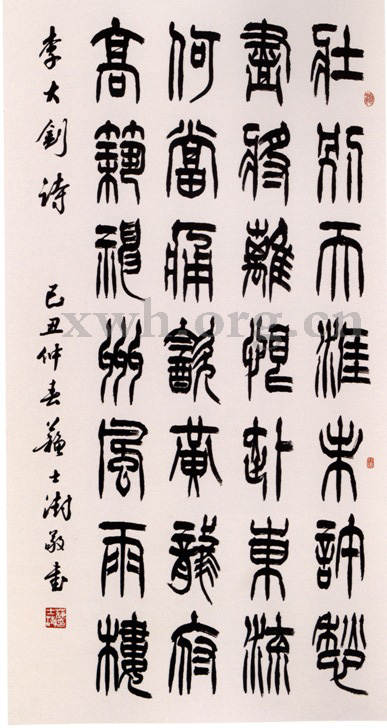 壯別天涯未許愁
盡將離恨赴東流
何當痛飲黃龍府
高築神州風雨樓
李大釗詩 己丑仲春蘇士澍敬書
xwh.org.cn